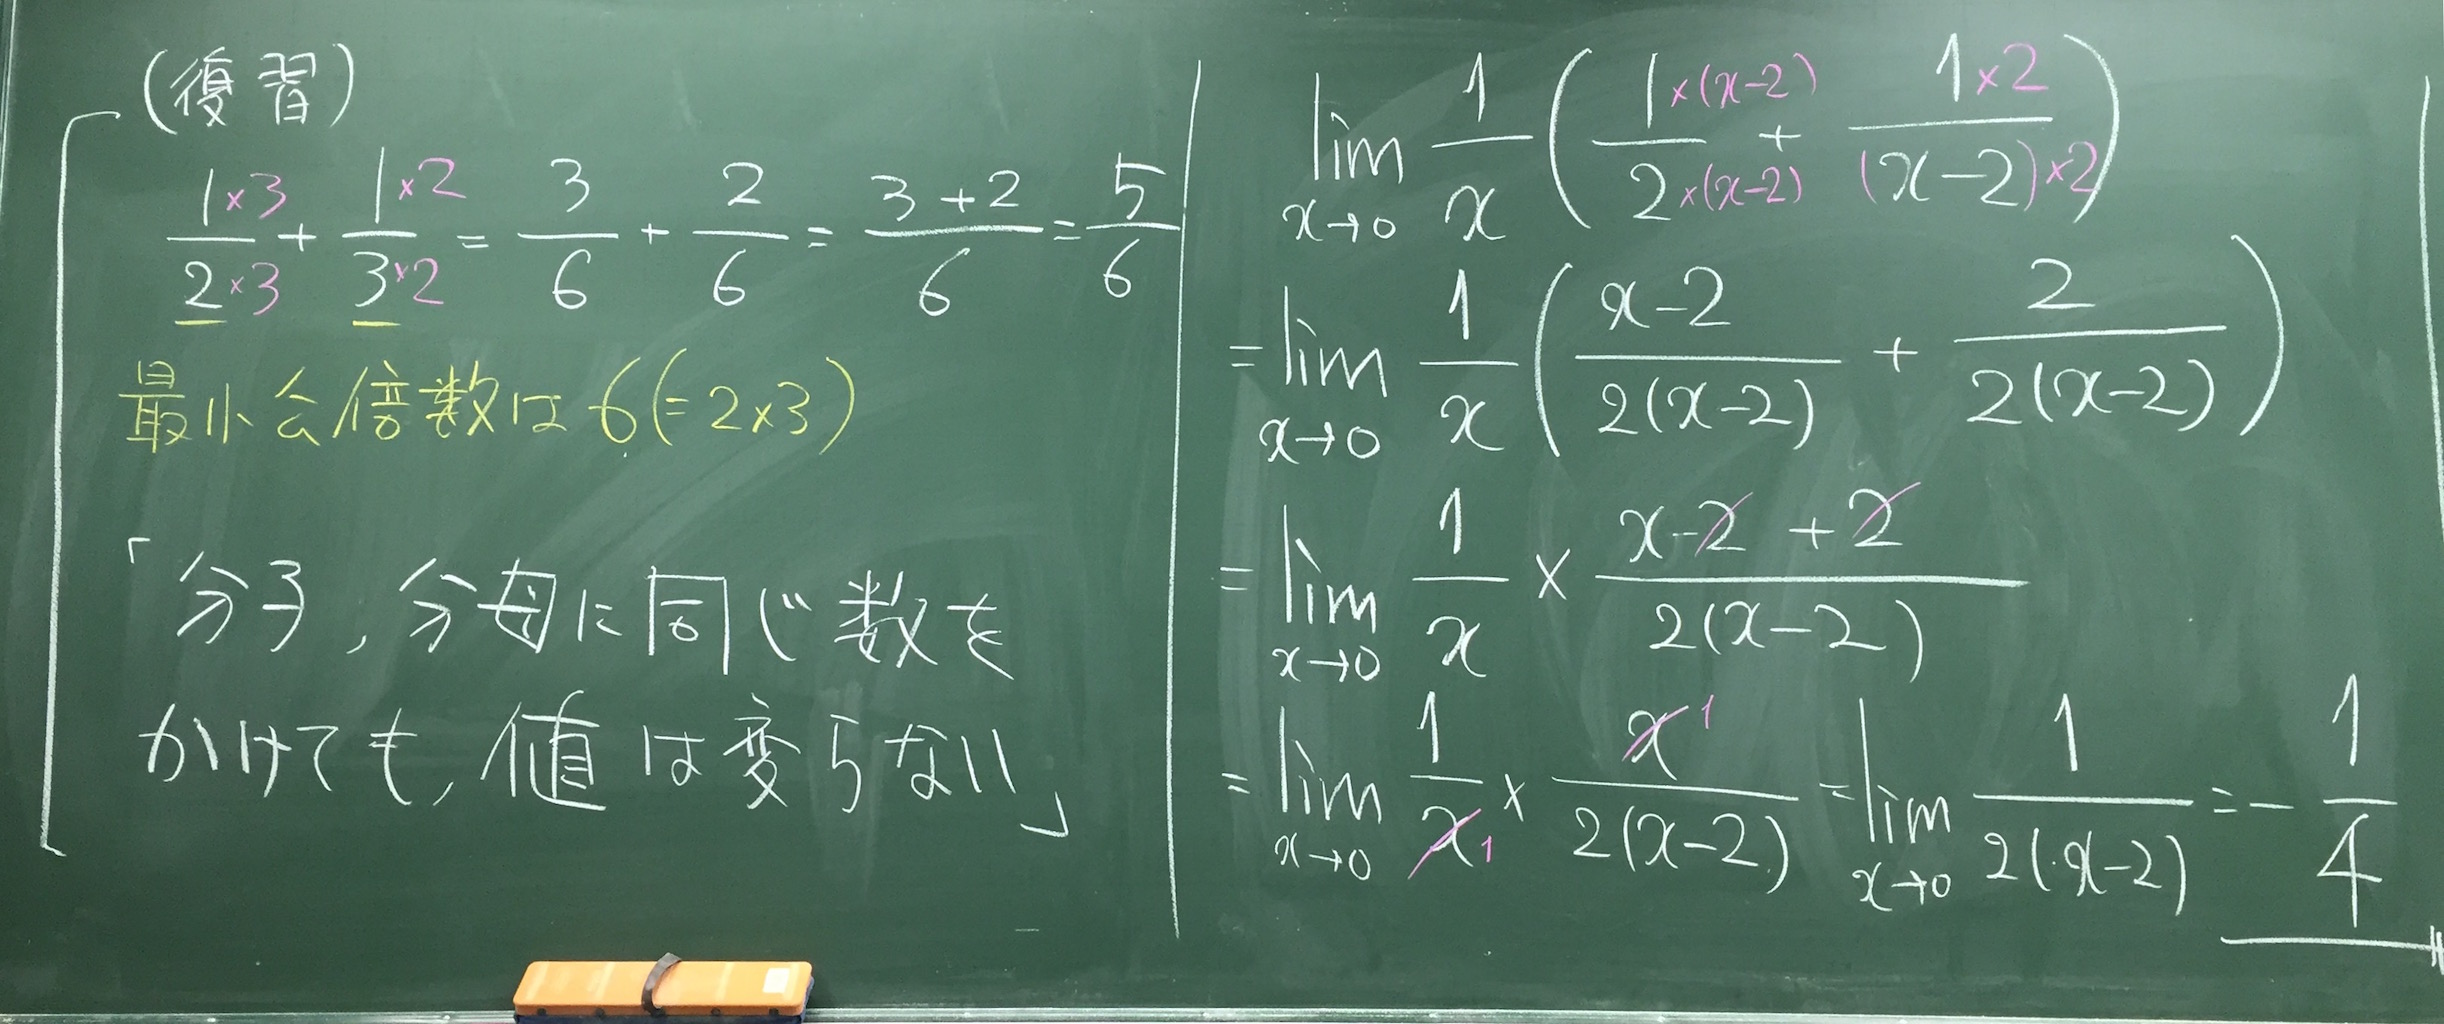 (復習)
1×3/2×3 + 1×2/3×2 = 3/6 + 2/6 = 3+2/6 = 5/6
最小公倍数は 6(=2×3)
「分子,分母に同じ数を
かけても,値は変らない」
lim x→0 1/x (1×(x-2)/2×(x-2) + 1×2/(x-2)×2)
= lim x→0 1/x (x-2/2(x-2) + 2/2(x-2))
= lim x→0 1/x × x-2+2/2(x-2)
= lim x→0 1/x 1 × x 1/2(x-2) = lim x→0 1/2(x-2) = -1/4